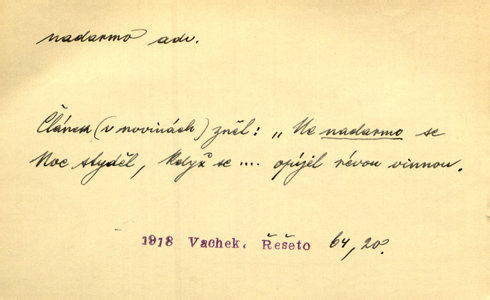 nadarmo adv.
Článek (v novinách) zněl: „Ne nadarmo se
Noe styděl, když se .... opájel révou vinnou.
1918 Vachek, Řešeto 64, 20.